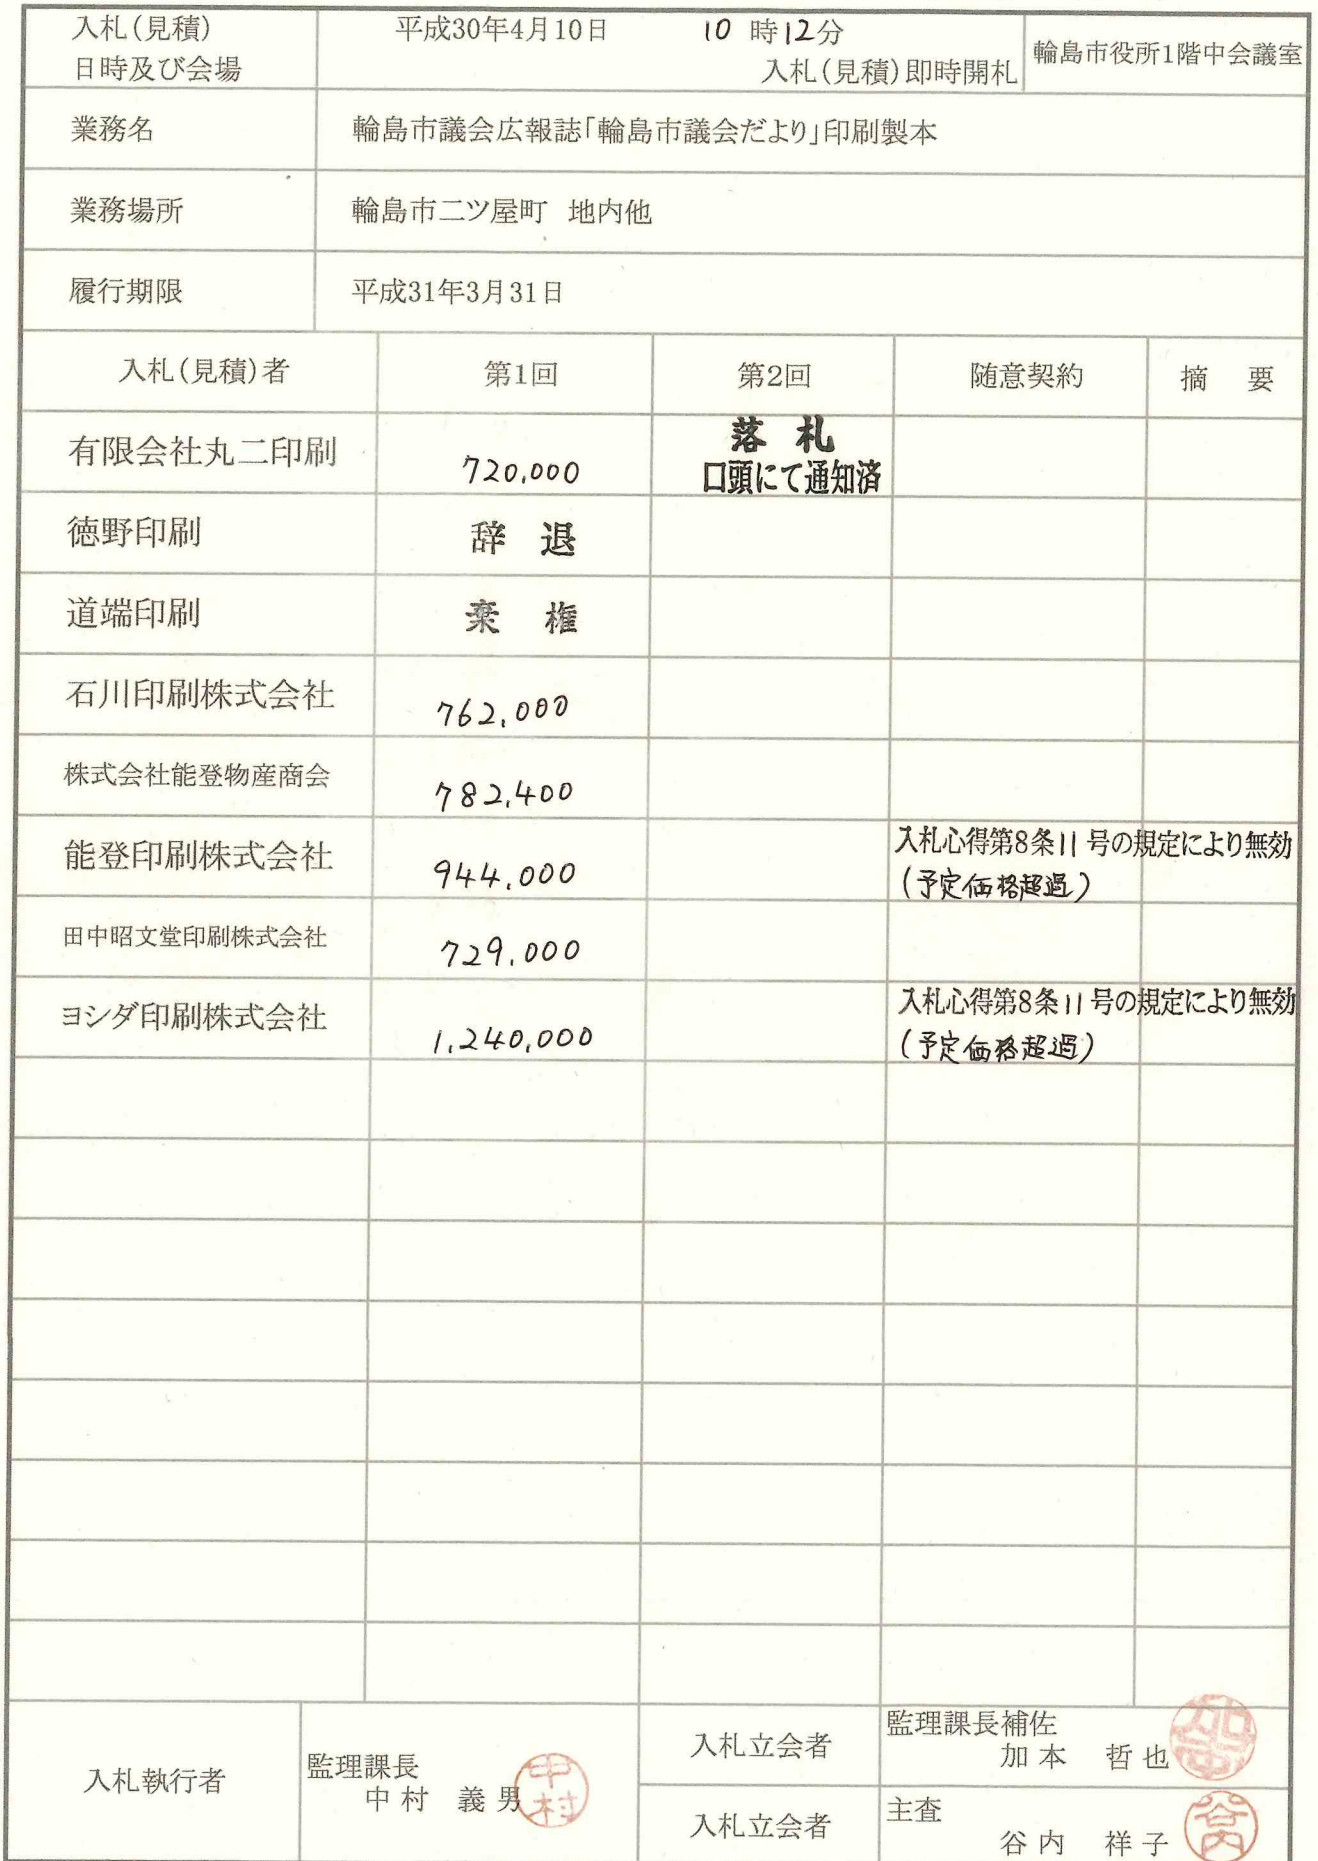 入札(見積)
日時及び会場
平成30年4月10日 10時12分
入札(見積)即時開札
輪島市役所1階中会議室
業務名 輪島市議会広報誌「輪島市議会だより」印刷製本
業務場所 輪島市二ツ屋町 地内他
履行期限 平成31年3月31日
入札(見積)者 第1回 第2回 随意契約 摘 要
有限会社丸二印刷 720,000 落札
口頭にて通知済
徳野印刷 辞退
道端印刷 棄権
石川印刷株式会社 762,000
株式会社能登物産商会 782,400
能登印刷株式会社 944,000 入札心得第8条11号の規定により無効
(予定価格超過)
田中昭文堂印刷株式会社 729,000
ヨシダ印刷株式会社 1,240,000 入札心得第8条11号の規定により無効
(予定価格超過)
入札執行者 監理課長
中村 義男 中村
入札立会者 監理課長補佐
加本 哲也
入札立会者 主査
谷内 祥子 谷内